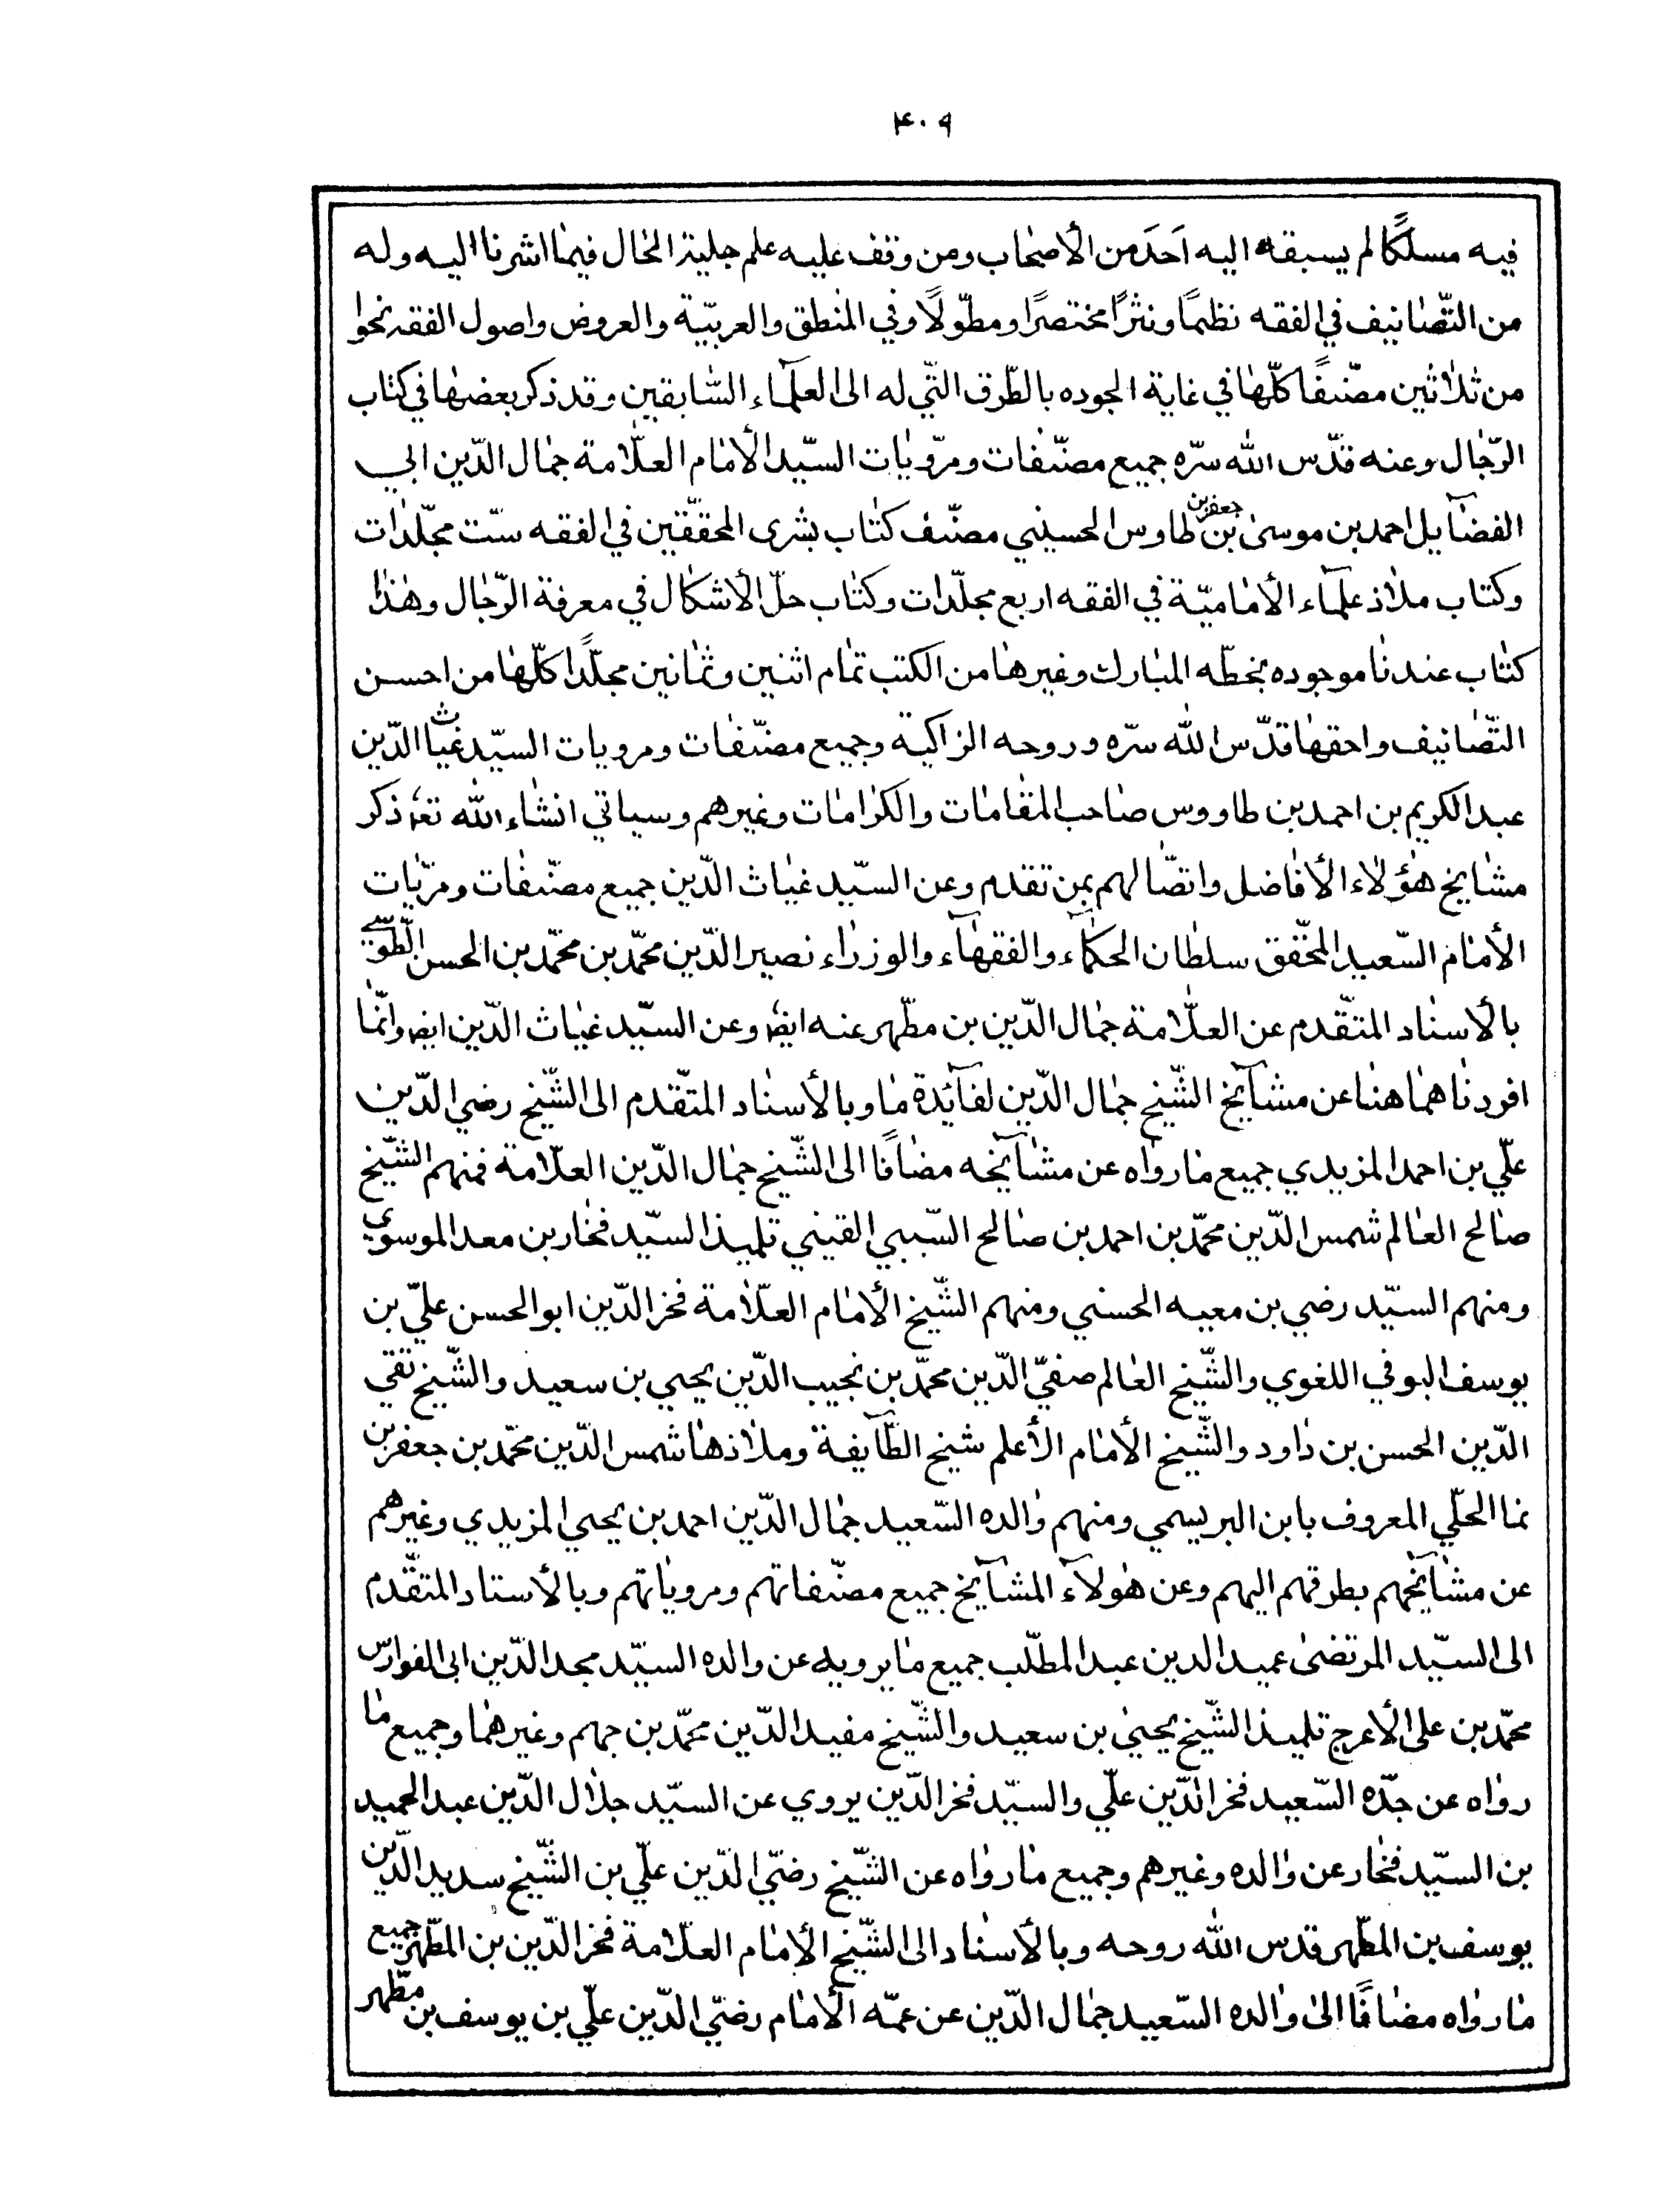 ۴۰۹
فيه مسلكًا لم يسبقه اليه اَحَدَ من الأصحٰاب ومن وقف عليه علم جلية الحٰال فيمٰا اشرنا اليه وله
من التّصٰانيف في الفقه نظمًا ونثرًا مختصرًا ومطوّلًا وفي المنطق والعربيّة والعروض واصول الفقه نحوا
من ثلٰاثين مصّنفًا كلّهٰا في غاية الجوده بالطّرق التّي له الى العلمآء السّابقين وقد ذكر بعضهٰا في كتٰاب
الرّجٰال وعنه قدّس الله سرّه جميع مصنّفات ومرّويٰات السيّد الأمٰام العلّامة جمٰال الدّين ابي
الفضٰآيل احمد بن موسىٰ بن جعفر بن طاوس الحسيني مصنّف كتٰاب بشرى المحققّين في الفقه ستّ مجلّدٰات
وكتٰاب ملٰاذ علمآء الأمٰاميّة في الفقه اربع مجلّدات وكتٰاب حلّ الأشكٰال في معرفة الرّجٰال وهٰذٰا
كتٰاب عندنٰا موجوده بخطّه المبٰارك وغيرهٰا من الكتب تمٰام اثنين وثمٰانين مجلّدًا كلّهٰا من احسن
التّصٰانيف واحقهٰا قدّس الله سرّه وروحه الزاكية وجميع مصنّفٰات ومرويات السيّد غيٰاث الدّين
عبد الكريم بن احمد بن طاووس صٰاحب المقٰامٰات والكرٰامٰات وغيرهم وسياتي انشٰاء الله تع ذكر
مشٰايخ هؤلٰاء الأفٰاضل واتصّٰالهم بمن تقدم وعن السيّد غيٰاث الدّين جميع مصنّفٰات ومرّيٰات
الأمٰام السّعيد المحّقق سلطٰان الحكمٰآء والفقهٰآء والوزرٰاء نصير الدّين محمّد بن محمّد بن الحسن الطّوسّي
بالأسنٰاد المتقّدم عن العلّامة جمٰال الدّين بن مطّهر عنه ايضٰ وعن السيّد غيٰاث الدّين ايض وانّمٰا
افردنٰا همٰا هنٰا عن مشٰآيخ الشّيخ جمٰال الدّين لفآئدة مٰا وبالأسنٰاد المتقّدم الى الشّيخ رضي الدّين
علّي بن احمد المزيدي جميع مٰا روٰاه عن مشٰآيخه مضٰافًا الى الشّيخ جمٰال الدّين العلّامة فمنهم الشّيخ
صٰالح العٰالم شمس الدّين محمّد بن احمد بن صٰالح السّيبي القيني تلميذ السيّد فخٰار بن معد الموسوي
ومنهم السيّد رضي بن معيه الحسني ومنهم الشّيخ الأمٰام العلّامة فخر الدّين ابو الحسن علّي بن
يوسف البوفي اللغوي والشّيخ العٰالم صفيّ الدّين محمّد بن نجيب الدّين يحيي بن سعيد والشّيخ تقي
الدّين الحسن بن دٰاود والشّيخ الأمٰام الأعلم شيخ الطّآيفة وملٰاذهٰا شمس الدّين محمّد بن جعفر بن
نما الحلّي المعروف بابن البريسمي ومنهم وٰالده السّعيد جمٰال الدّين احمد بن يحيي المزيدي وغيرهم
عن مشٰآيخهم بطرقهم اليهم وعن هٰولآء المشآيخ جميع مصنّفاتهم ومرويٰاتهم وبالأستاد المتقّدم
الى السيّد المرتضىٰ عميد الدين عبد المطلّب جميع مٰا يرويه عن والده السيّد مجد الدّين ابى الفوارس
محمّد بن على الأعرج تلميذ الشّيخ يحيىٰ بن سعيد والشّيخ مفيد الدّين محمّد بن جهم وغيرهمٰا وجميع مٰا
روٰاه عن جدّه السّعيد فخر الدّين علّي والسيّد فخر الدّين يروي عن السيّد جلٰال الدّين عبد الحميد
بن السيّد فخٰار عن وٰالده وغيرهم وجميع مٰا روٰاه عن الشّيخ رضيّ الدّين علّي بن الشّيخ سديد الدّين
يوسف بن المطّهر قدس الله روحه وبالأسنٰاد الى الشّيخ الأمٰام العلّامة فخر الدّين بن المطّهر جميع
مٰا روٰاه مضٰافًا الىٰ وٰالده السّعيد جمٰال الدّين عن عمّه الأمٰام رضيّ الدّين علّي بن يوسف بن مطّهر